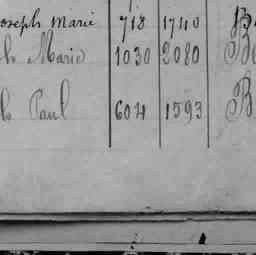 Joseph Marie 718 1740 B
ls Marie 1030 2080 B
ls Paul 604 1593 B